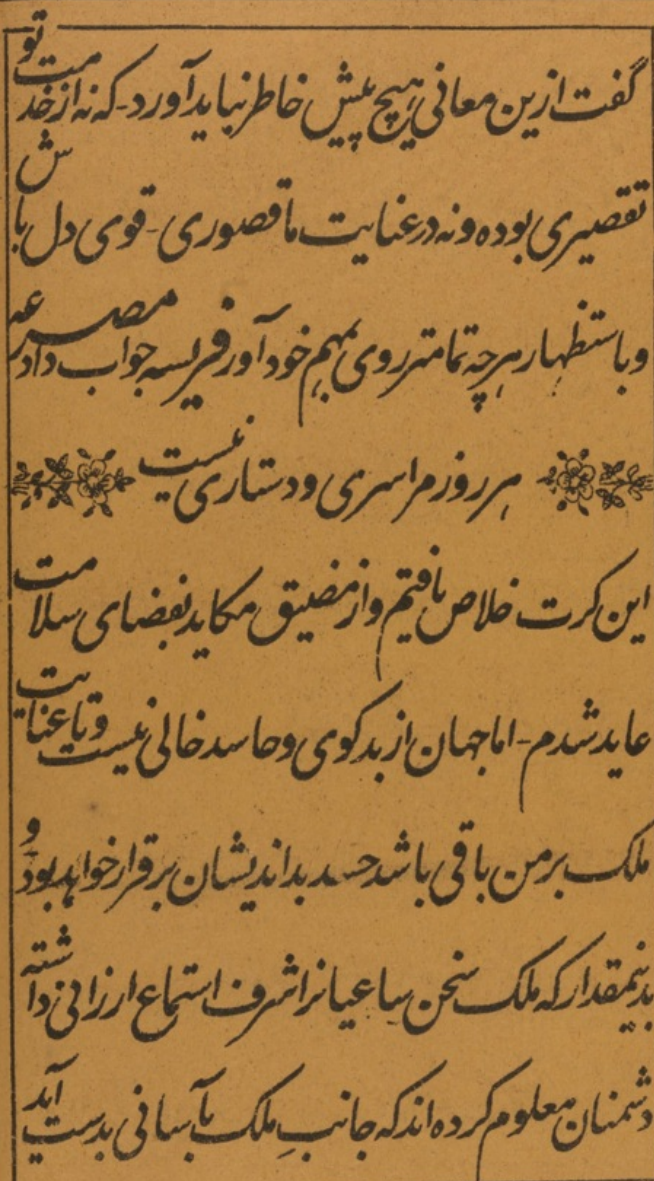 گفت ازین معانی هیچ پیش خاطر نباید آورد - که نه از خدمت تو
تقصیری بوده و نه در عنایت ما قصوری - قوی دل باش
و باستظهار هرچه تمامتر روی بمهم خود آور فریسه جواب داد مصرعه
هر روز مرا سری و دستاری نیست
این کرت خلاص یافتم و از مضیق مکاید بفضای سلامت
عاید شدم - اما جهان از بدگوی و حاسد خالی نیست و تا عنایت
ملک بر من باقی باشد حسد بداندیشان برقرار خواهد بود و
بدینمقدار که ملک سخن ساعیانرا شرف استماع ارزانی داشته
دشمنان معلوم کرده اند که جانبِ ملک بآسانی بدست آید